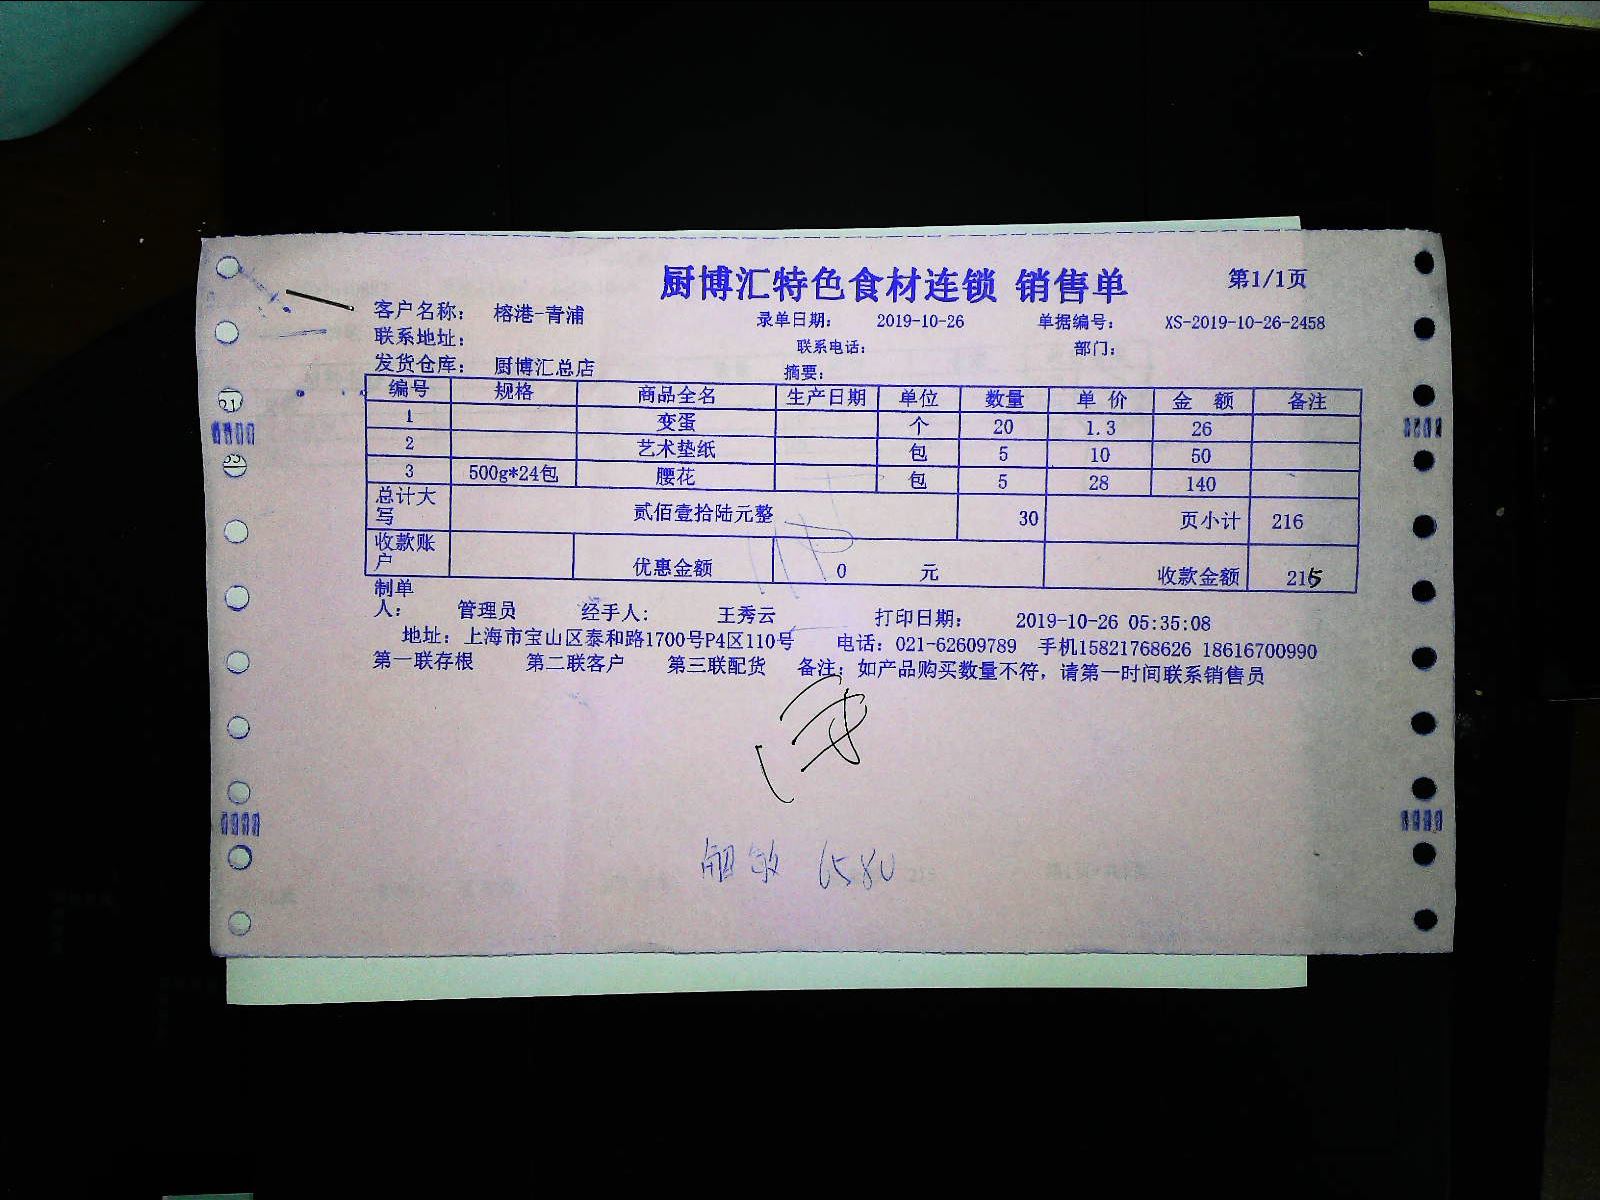 厨博汇特色食材连锁 销售单 第1/1页
客户名称: 榕港-青浦 录单日期: 2019-10-26 单据编号: XS-2019-10-26-2458
联系地址: 联系电话: 部门:
发货仓库: 厨博汇总店 摘要:
编号 规格 商品全名 生产日期 单位 数量 单 价 金 额 备注
1 变蛋 个 20 1.3 26
2 艺术垫纸 包 5 10 50
3 500g*24包 腰花 包 5 28 140
总计大写 贰佰壹拾陆元整 30 页小计 216
收款账户 优惠金额 0 元 收款金额 215
制单人: 管理员 经手人: 王秀云 打印日期: 2019-10-26 05:35:08
地址: 上海市宝山区泰和路1700号P4区110号 电话: 021-62609789 手机15821768626 18616700990
第一联存根 第二联客户 第三联配货 备注: 如产品购买数量不符, 请第一时间联系销售员
6580